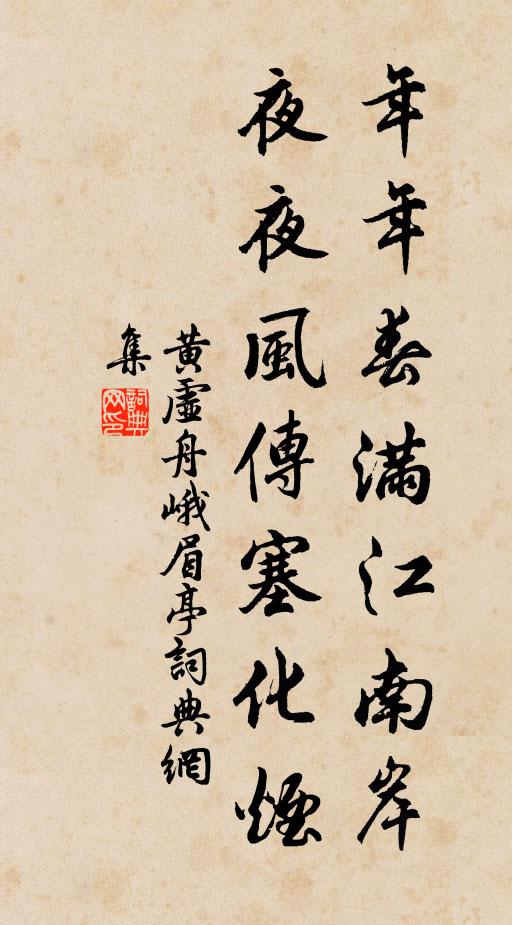 年年春滿江南岸
夜夜風傳塞化煙
黃虛舟峨眉亭詞典網
集
詞典
网印